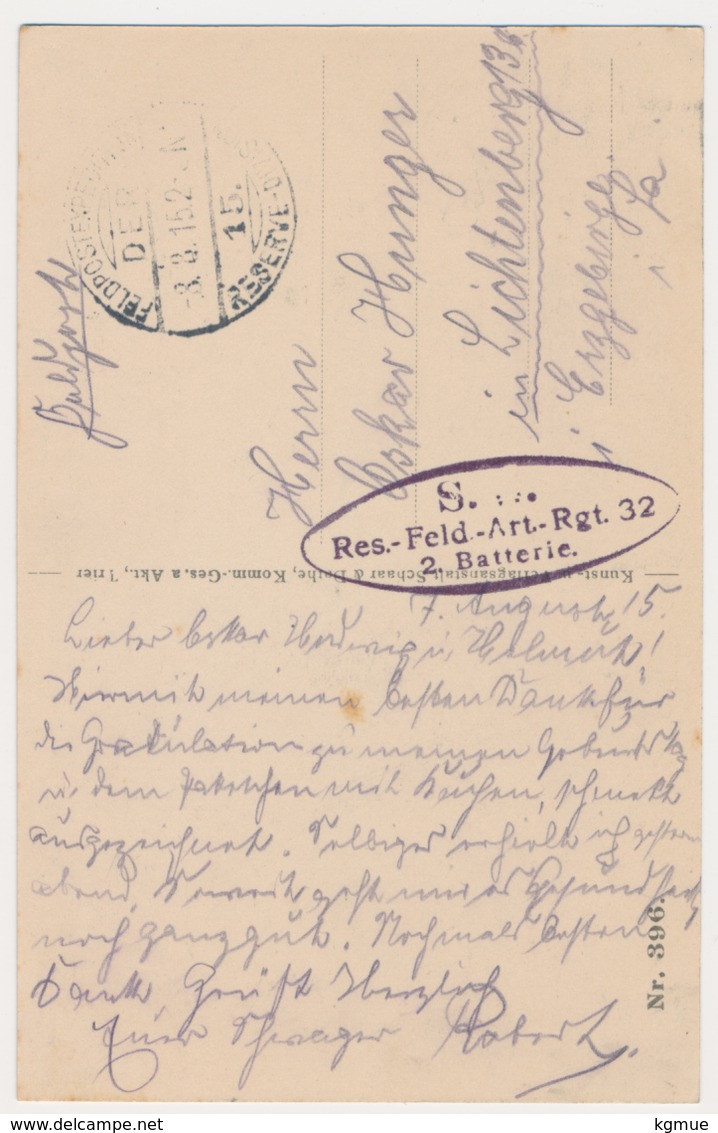 Feldpost
FELDPOSTEXPEDIT
DER
-8.8.15.2-3N
15.
RESERVE-DIVIS
Herrn
Oskar Hunger
in Lichtenberg
i Erzgebirge
i Sa.
S. B.
Res.-Feld.-Art.-Rgt. 32
2. Batterie.
Kunst- u. Verlagsanstalt Schaar & Dathe, Komm.-Ges. a Akt., Trier
7. August 15.
Lieber Oskar Hedwig u. Helmuth!
Hiermit meinen besten Dank für
die Gratulation zu meinen Geburtstag
u. dem Paketchen mit Kuchen, schmekt
ausgezeichnet. Selbiges erhielt ich gestern
abend. Soweit geht mir es Gesundheitl
noch ganz gut. Nochmals besten
Dank. Grüßt Herzlich
Euer Schwager Robert.
Nr. 396.
delcampe.net
kgmue